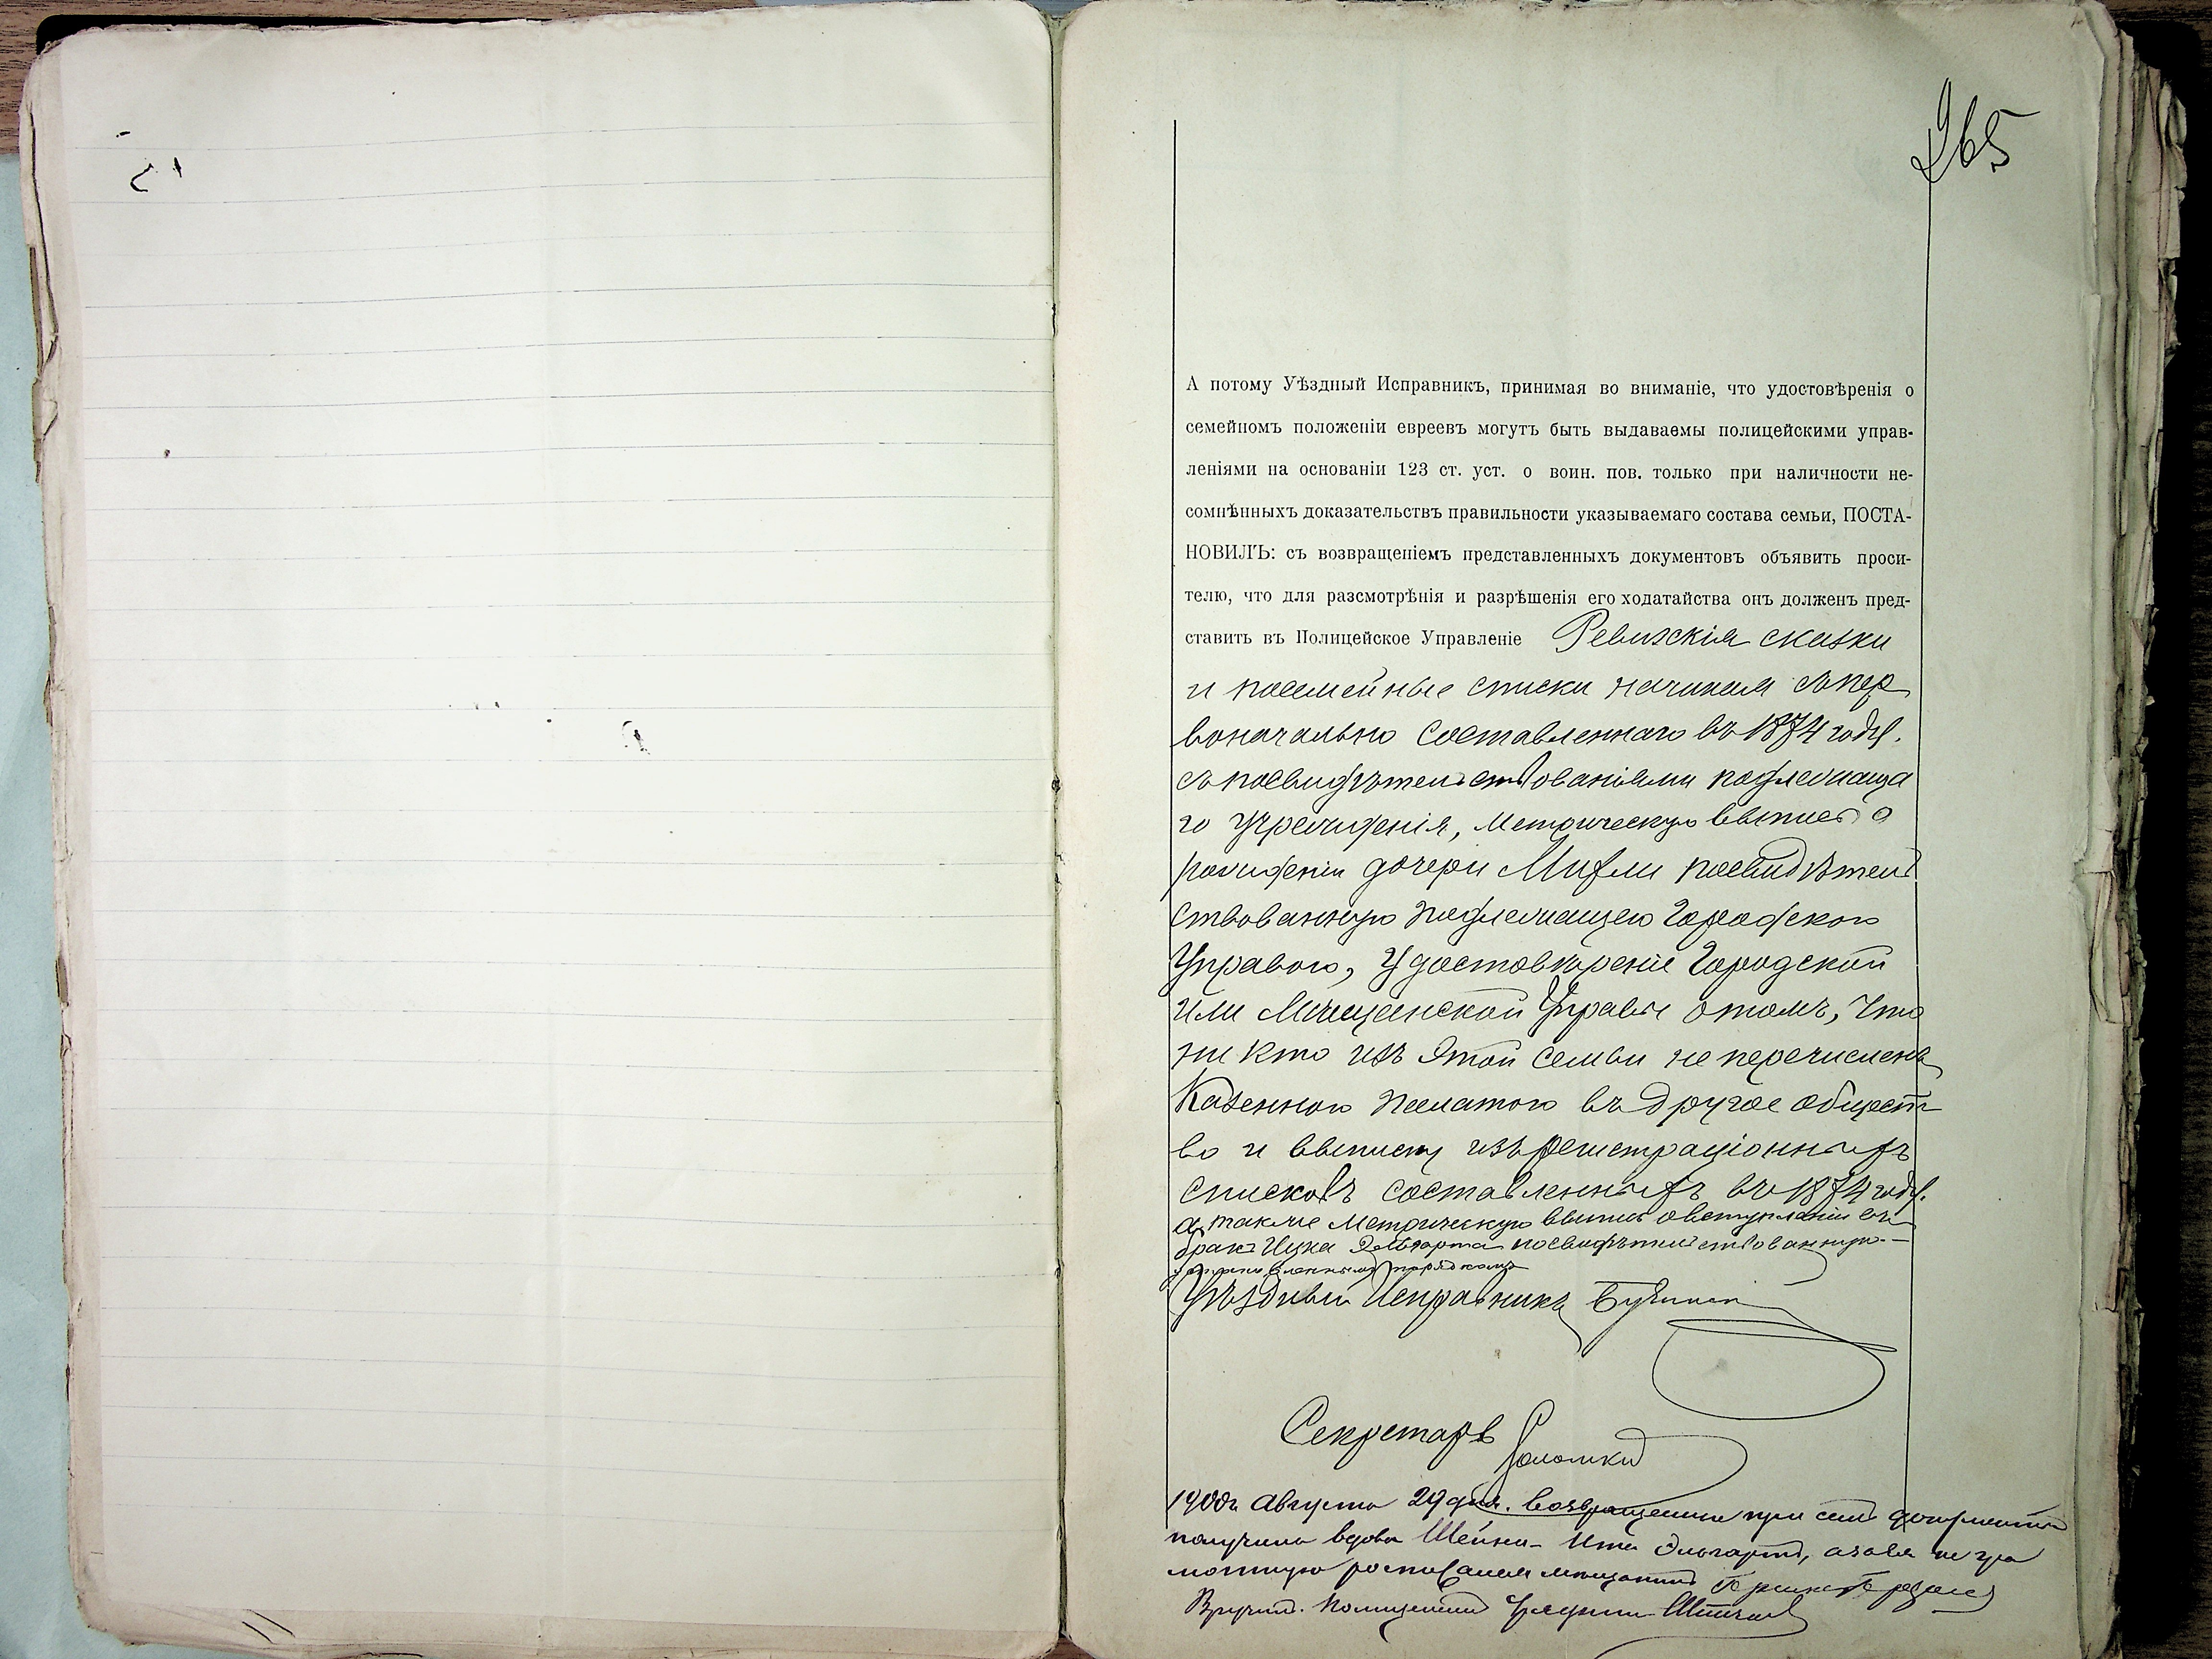 265
А потому Уѣздный Исправникъ, принимая во вниманіе, что удостовѣренія о
семейномъ положеніи евреевъ могутъ быть выдаваемы полицейскими управ-
леніями на основаніи 123 ст. уст. о воин. пов. только при наличности не-
сомнѣнныхъ доказательствъ правильности указываемаго состава семьи, ПОСТА-
НОВИЛЪ: съ возвращеніемъ представленныхъ документовъ объявить проси-
телю, что для разсмотрѣнія и разрѣшенія его ходатайства онъ долженъ пред-
ставить въ Полицейское Управленіе Ревизскія сказки
и посемейные списки начиная съ пер
воначально составленнаго въ 1874 году.
съ посвидѣтельствованіями подлежаща
го учрежденія, метрическую выпись о
рожденіи дочери посвидѣтель
ствованную подлежащею Городскою
Управою, Удостовѣреніе Городской
или Мѣщанской Управы о томъ, что
ни кто изъ этой семьи не перечисленъ
Казенною Палатою въ другое общест
во и выписку изъ регистраціонныхъ
списковъ составленныхъ въ 1874 году.
а также метрическую выпись о вступленіи въ
бракъ Ицка посвидѣтельствованную
установленнымъ порядкомъ
Уѣздный Исправникъ
Секретарь
1900 г. Августа 29 дня. возвращенные при семъ документы
получила вдова Шейна- Ита Эльгартъ, а за нея негра
мотную росписался мѣщанинъ
Вручилъ. Полицейскій Урядникъ